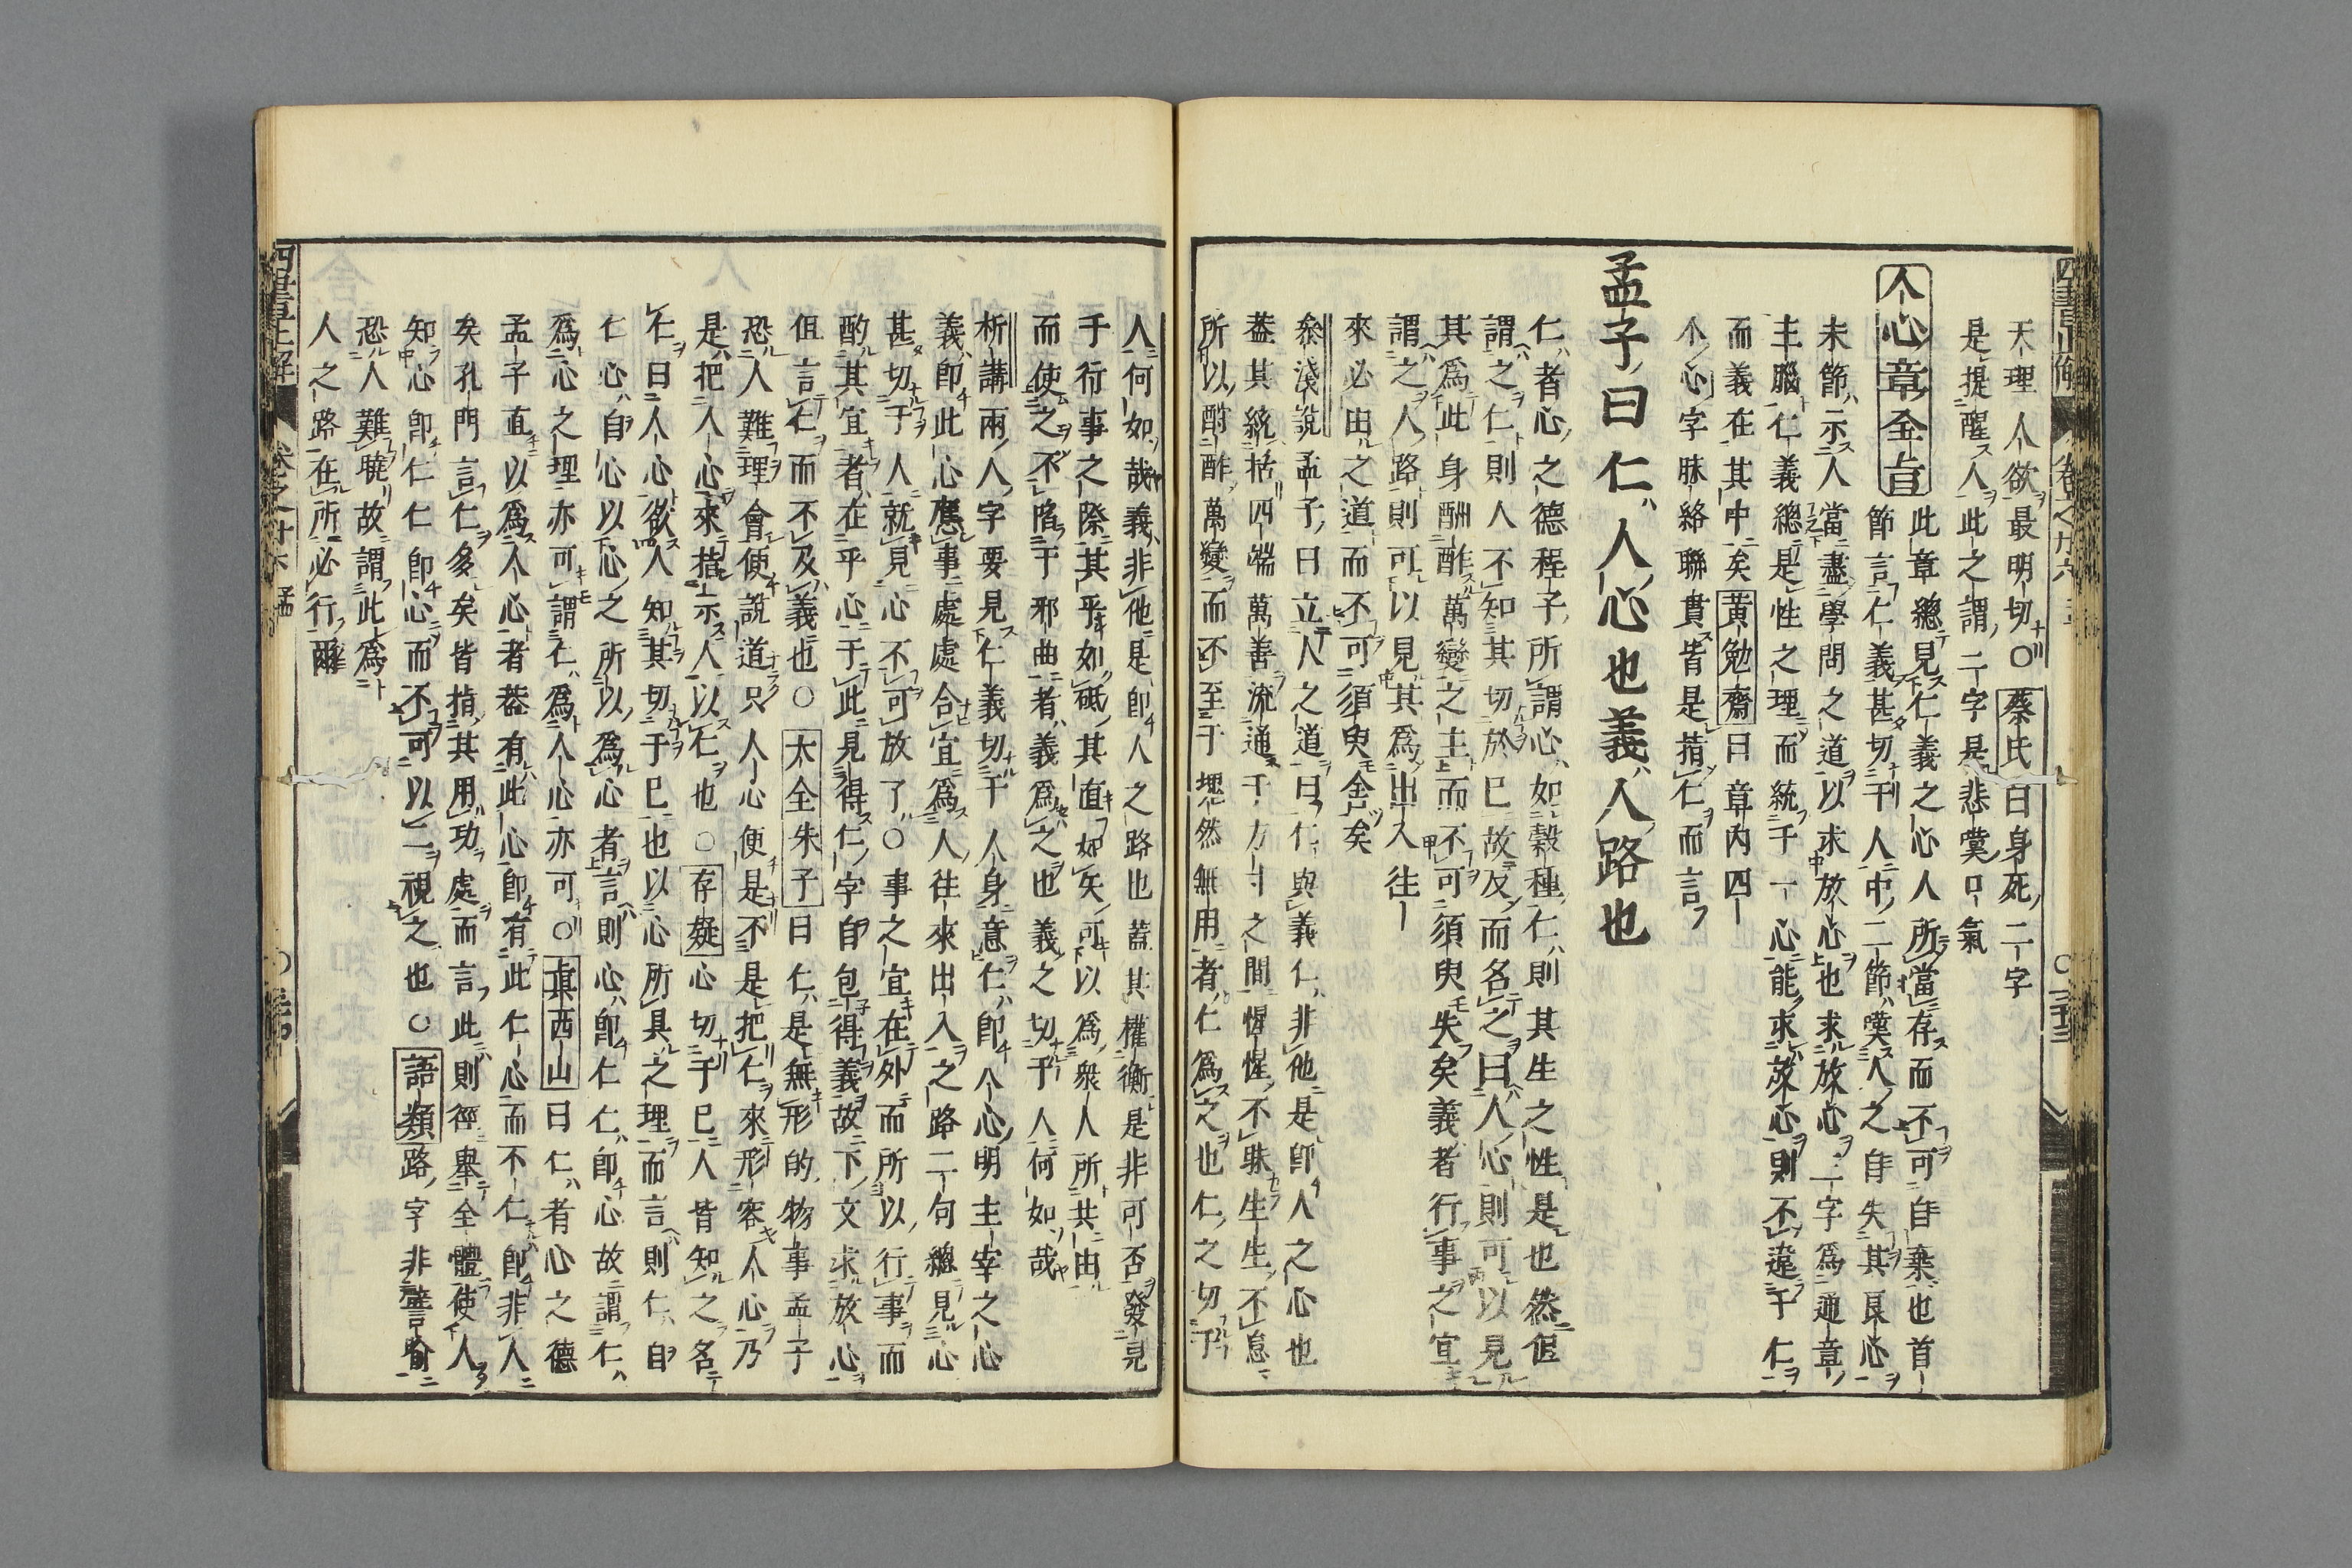 天理人欲最明切○蔡氏曰身死二字
是提醒人此之謂二字是悲嘆口氣
人心章全旨此章總見仁義之心人所當存而不可自棄也首一
節言仁義甚切于人中二節嘆人之自失其良心
末節示人當盡學問之道以求放心也求放心三字爲通章
主腦仁義總是性之理而統于一心能求放心則不違于仁
而義在其中矣黄勉齋曰章内四
个心字脉絡聯貫皆是指仁而言
孟子曰仁人心也義人路也
仁者心之德程子所謂心如穀種仁則其生之性是也然但
謂之仁則人不知其切於已故反而名之曰人心則可以見
其爲此身酬酢萬變之主而不可須臾失矣義者行事之宜
謂之人路則可以見其爲出入往
來必由之道而不可須臾舍矣
叅淺說孟子曰立人之道曰仁與義仁非他是卽人之心也
葢其統括四端萬善流通于方寸之間惺惺不昧生生不息
所以酧酢萬變而不至于塊然無用者仁爲之也仁之切于
人何如哉義非他是卽人之路也葢其權衡是非可否發見
于行事之際其平如砥其直如矢可以爲衆人所共由
而使之不陷于邪曲者義爲之也義之切于人何如哉
析講兩人字要見仁義切于人身意仁卽人心明主宰之心
義卽此心應事處處合宜爲人往來出入之路二句總見心
甚切于人就見心不可放了○事之宜在外而所以行事而
酌其宜者在乎心于此見得仁字自包得義故下文求放心
但言仁而不及義也○大全朱子曰仁是無形的物事孟子
恐人難理會便說道只人心便是不是把仁來形容人心乃
是把人心來指示人以仁也○存疑心切于已人皆知之名
仁曰人心欲人知其切于已也以心所具之理而言則仁自
仁心自心以心之所以爲心者言則心卽仁仁卽心故謂仁
爲心之理亦可謂仁爲人心亦可○眞西山曰仁者心之德
孟子直以爲人心者葢有此心卽有此仁心而不仁卽非人
矣孔門言仁多矣皆指其用功處而言此則徑舉全體使人
知心卽仁仁卽心而不可以二視之也○語類路字非譬喻
恐人難曉故謂此爲
人之路在所必行爾